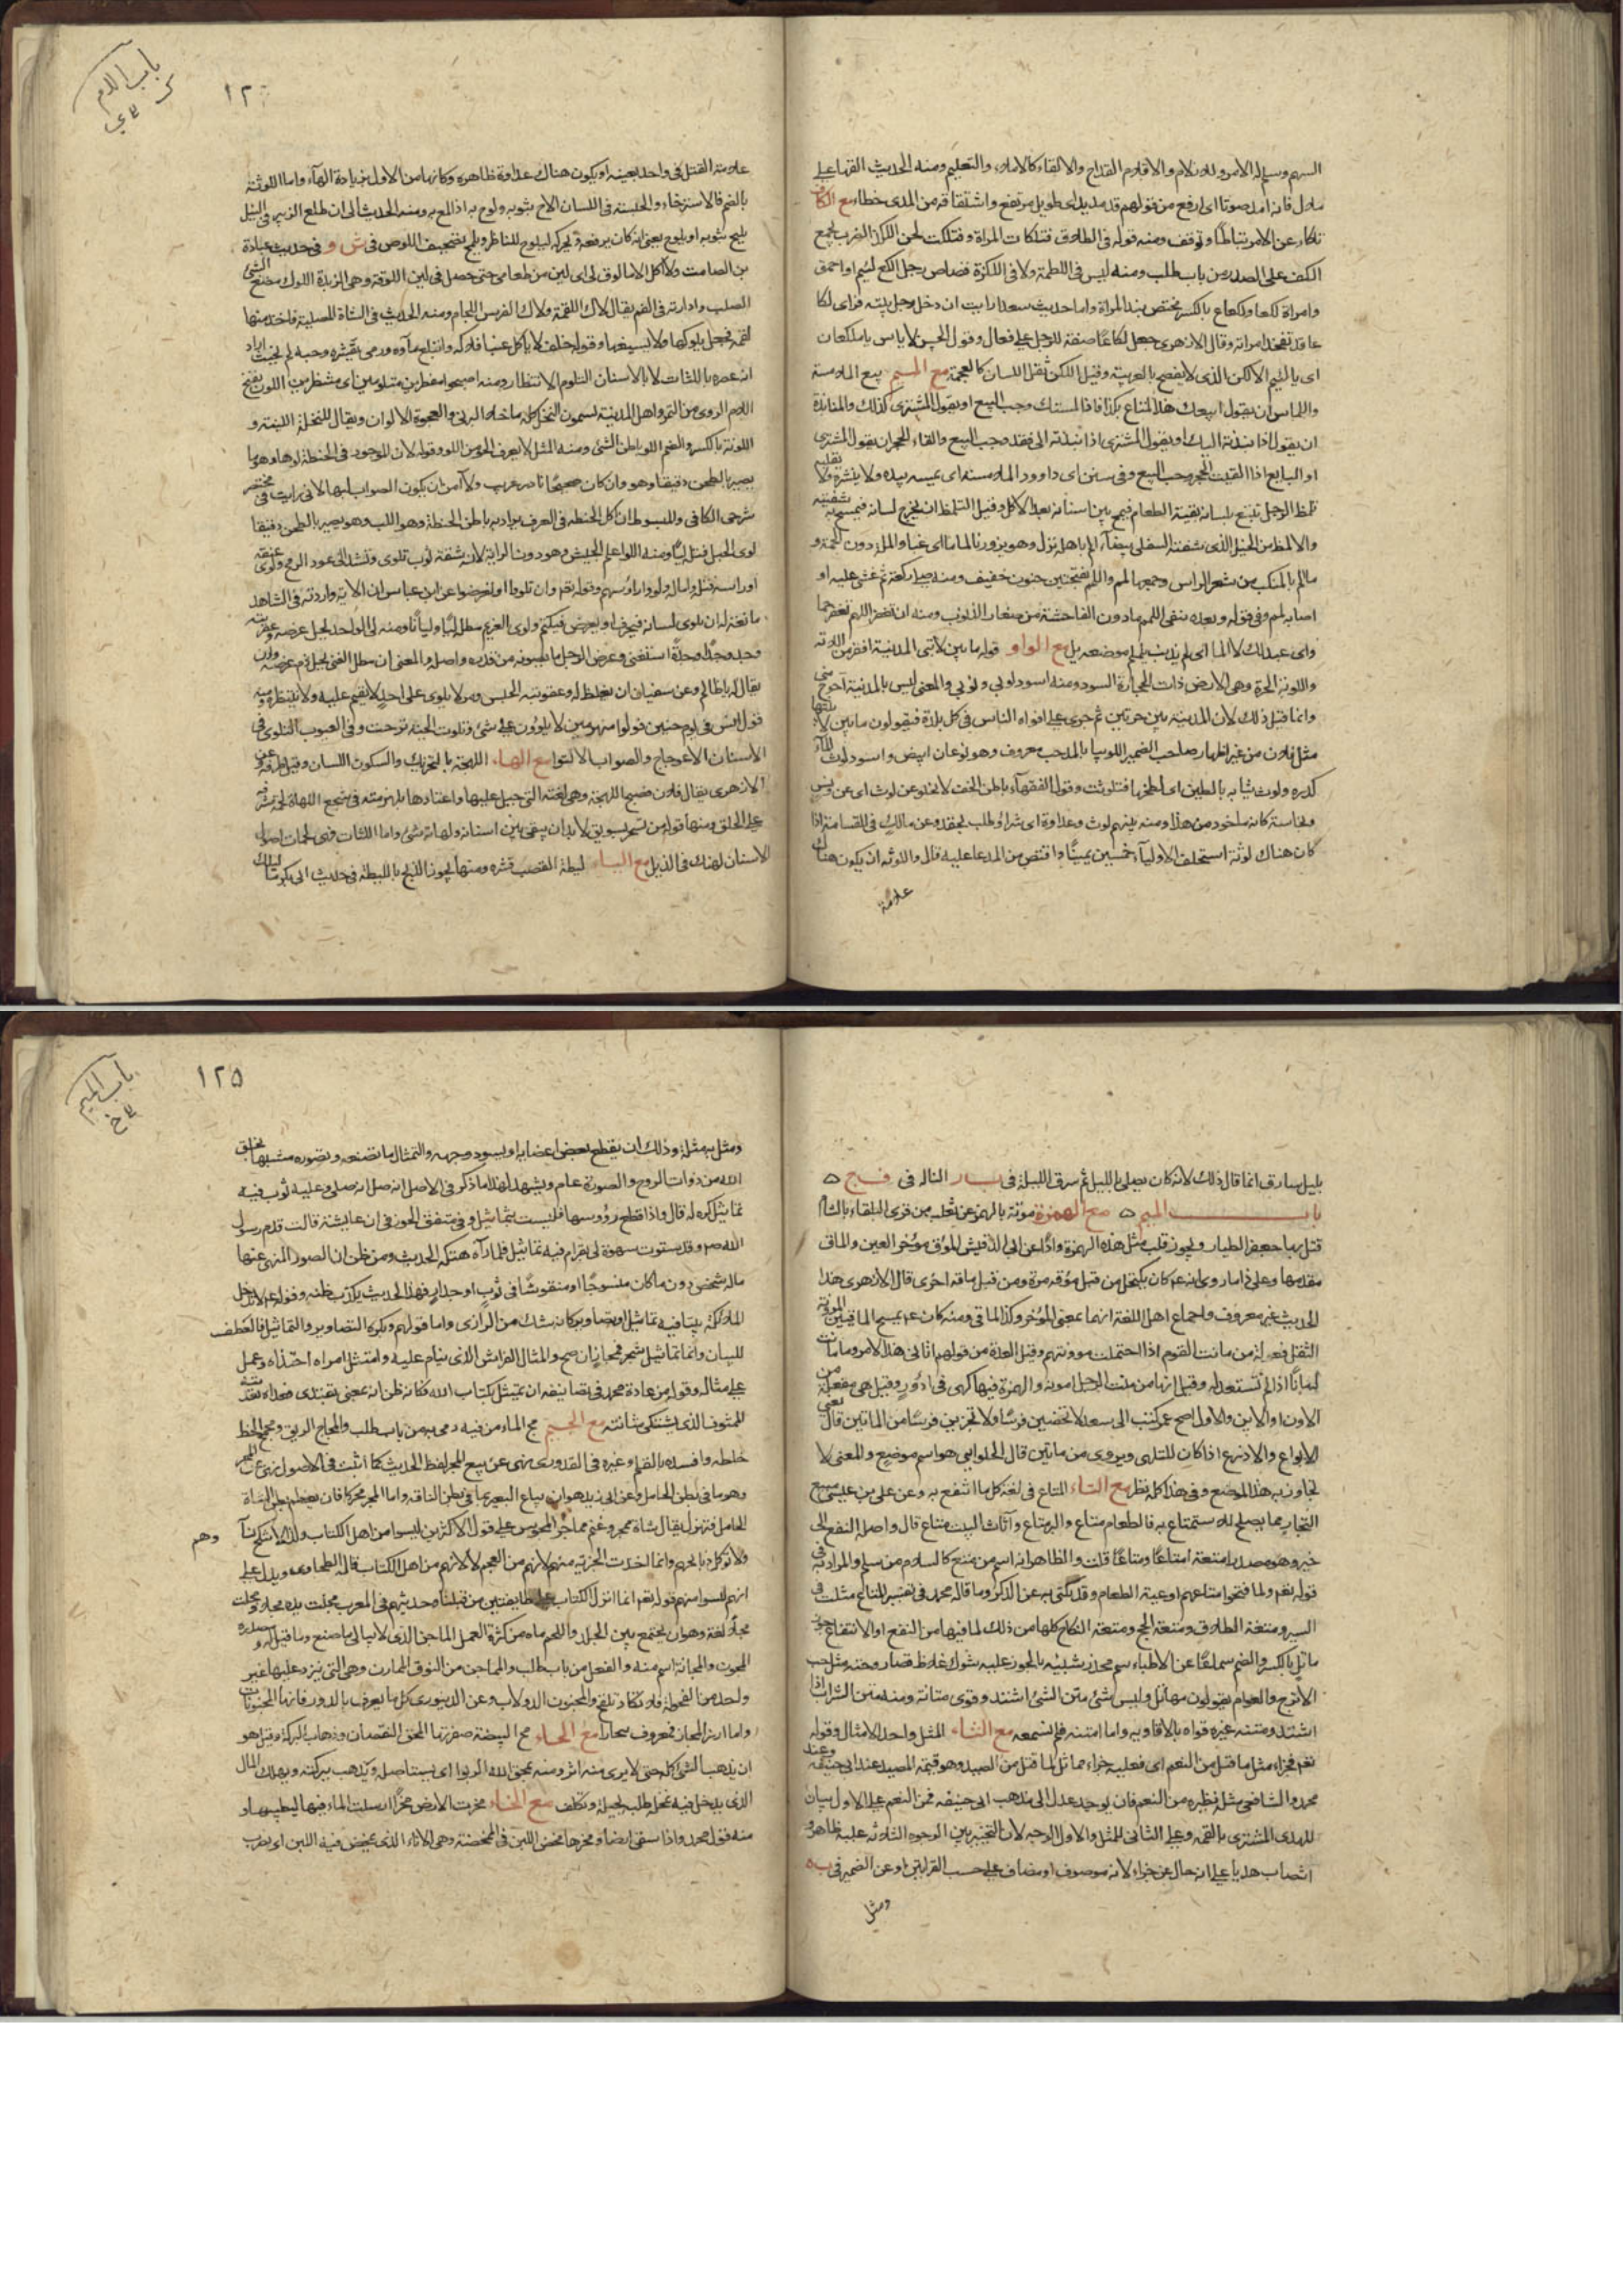 السهم وسلم له الامر وله والاقلام القداح والالقاء كالاملاء والتعليم ومنه الحديث القها على
بلال فانه امد صوتا اى ارفع من قولهم قد مديد اى طويل مرتفع واشتقاقه من المدى خطاء مع الكاف
تلكاء عن الامر تباطأ وتوقف ومنه قوله فى الطلاق فتلكات المراة وفتلكت لحن اللكز الضرب بجمع
الكف على الصدر من باب طلب ومنه ليس فى اللطمة ولا فى اللكزة قصاص رجل لكع لئيم او احمق
وامراة لكعا ولكعاع بالكسر مختص بندا المراة واما حديث سعد ارايت ان دخل رجل بيته فراى لكاعا
قد تفخذ امراته وقال الازهرى جعل لكاعا صفة للرجل على فعال وقول الحسن لاياس ياملكعان
اى يا لئيم الالكن الذى لا يفصح بالعربية وقيل اللكن ثقل اللسان كالعجمة مع الميم بيع الملامسة
واللماس ان يقول ابيعك هذا المتاع بكذا فاذا لمستك وجب البيع او يقول المشترى كذلك والمنابذة
ان يقول اذا نبذته اليك او يقول المشترى اذا نبذته الى فقد وجب البيع والقاء الحجر ان يقول المشترى
او البايع اذا القيت الحجر وجب البيع وفى سنن ابى داوود الملامسة ان يمسه بيده ولا ينشره ولا يقلبه
تلمظ الرجل تتبع بلسانه بقية الطعام فيه بين اسنانه بعد الاكل وقيل التلمظ ان يخرج لسانه فيمسح به شفتيه
والالمظ من الخيل الذى شفته السفلى بيضاء الم باهله نزل وهو يزورنا لماما اى غبا واللمة دون الجمة و
ما الم بالمنكب من شعر الراس وجمعها لمم واللمم بفتحتين جنون خفيف ومنه صلى ركعة ثم غشى عليه او
اصابه لمم وفى قوله وبعده ننفى اللمم مادون الفاحشة من صغار الذنوب ومنه ان تغفر اللهم تغفر جما
واى عبد لك لا الما اى لم يذنب يلملم موضعه يل مع الواو قوله ما بين لابتى المدينة افقر من اللابة
واللوبة الحرة وهى الارض ذات الحجارة السود ومنه اسود لوبى ونوبى والمعنى ليس بالمدينة احوج منى
وانما قيل ذلك لان المدينة بين حرتين ثم جرى على افواه الناس فى كل بلدة فيقولون ما بين لابتيها
مثل فلان من غير اظهار صاحب الضمير اللوبيا بالمد حب معروف وهو نوعان ابيض واسود لوث الماء
كدره ولوث ثيابه بالطين اى لطخها فتلوثت وقول الفقهاء باطن الخف لا يخلو عن لوث اى عن دنس
ونجاسة كانه ماخوذ من هذا ومنه بينهم لوث وعداوة اى شر او طلب بحقد وعن مالك فى القسامة اذا
كان هناك لوثة استحلف الاولياء خمسين يمينا واقتص من المدعا عليه قال واللوثه ان يكون هناك
علامة
باب اللام
علامة القتل فى واحد بعينه او يكون هناك عداوة ظاهرة وكانها من الاول بزيادة الهاء واما اللوثة
بالضم فالاسترخاء والحبسة فى اللسان الاح بثوبه ولوح به اذا لمع به ومنه الحديث الى ان طلع الزبير فى النيل
يليح بثوبه او يلوح يعنى انه كان يرفعه ويحركه ليلوح للناظر ويلمح تصحيف اللوص فى ش و فى حديث عبادة
بن الصامت ولا اكل الا ما لوق لى اى لين من طعامى حتى حصل فى لين اللوقة وهى الزبدة اللوك مضغ الشئ
الصلب وادارته فى الفم يقال لاك اللقمة ولاك الفرس اللجام ومنه الحديث فى الشاة المصلية فاخذ منها
لقمة فجعل يلوكها ولا يسيغها وقوله خلف لا ياكل عنبا فلاكه وابتلع ماءه ورمى بقشره وحبه لم يحنث اراد
انه عصره باللثات لا بالاسنان التلوم الانتظار ومنه اصبحوا مفطرين متلومين اى منتظرين اللون بفتح
اللام الردى من التمر واهل المدينة يسمون النخل كله ما خلا البرنى والعجوة الالوان ويقال للنخلة اللينة و
اللونة بالكسر والضم اللو باطن الشئ ومنه المثل لا يعرف الحو من اللو وقوله لان الموجود فى الحنطة لوها وهو ما
يصير بالطحن دقيقا وهو وان كان صحيحا نادر غريب ولا آمن ان يكون الصواب لبها لانى رايت فى مختصر
شرحى الكافى والمبسوط ان اكل الحنطة فى العرف يراد به باطن الحنطة وهو اللب وهو يصير بالطحن دقيقا
لوى الحبل فتله ليا ومنه اللواء علم الجيش وهو دون الراية لانه شقة ثوب تلوى وتشد الى عود الرمح ولوى عنقه
اوراسه فتله واماله ولووا رؤسهم وقوله تعالى وان تلووا او تعرضوا عن ابن عباس ان الآية واردة فى الشاهد
يقال له يا ظالم وعن سفيان ان يغلظ له وعقوبته الحبس ومر لا يلوى على احد لا يقيم عليه ولا ينتظره ومنه
قول انس فى يوم حنين فولوا منهزمين لا يلوون على شئ وتلوت الحية ترحت وفى العيوب التلوى فى
الاسنان الاعوجاج والصواب الالتوا مع الهاء اللهجة بالتحريك والسكون اللسان وقيل طرفه وعن
الازهرى يقال فلان فصيح اللهجة وهى لغته التى جبل عليها واعتادها
على الحلق ومنها قوله من تسحر بسويق لابد ان يبقى بين اسنانه ولهاته شئ واما اللثات فهى لحمات اصول
الاسنان لهنك فى الذيل مع الياء ليطة القصب قشره ومنها يجوز الذبح بالليطة فى حديث ابى بكر
بليل سارق انما قال ذلك لانه كان يصلى بالليل ثم سرق الليلة فى يسار النالة فى فج
باب الميم مع الهمزة مؤتة بالهمز عن ثعلب من قرى البلقاء بالشام
قتل بها جعفر الطيار ويجوز قلب مثل هذه الهمزة واوا عن ابى الدقيش المؤق مؤخر العين والماق
مقدمها وعلى ذا ما روى انه عم كان يكتحل من قبل مؤقه مرة ومن قبل ماقه اخرى قال الازهرى هذا
الحديث غير معروف واجماع اهل اللغة انهما بمعنى المؤخر وكذا الماقى ومنه كان عم يمسح الماقيين المؤنة
الثقل فعولة من مانت القوم اذا احتملت مؤونتهم وقيل العدة من قولهم اتانى هذا الامر وما مانت
له مانا اذا لم تستعد له وقيل انها من منت الرجل امونه والهمزة فيها كهى فى ادؤر وقيل هى مفعلة من
الاون او الاين والاول اصح عمر كتب الى سعد لا تخصين فرسا ولا تجرين فرسا من الماتين قال يعنى
الابواع والاذرع اذا كان للتلهى ويروى من ماتين قال الحلوايى هو اسم موضع والمعنى لا
تجاوز به هذا الموضع وفى هذا كله نظر مع التاء المتاع فى لغة كل ما انتفع به وعن على بن عيسى مبيع
التجار مما يصلح للاستمتاع به فالطعام متاع والبر متاع واثاث البيت متاع قال واصله النفع الى
خير وهو مصدر امتعه امتاعا ومتاعا قلت والظاهر انه اسم من متع كالسلام من سلم والمراد به فى
قوله تعالى ولما فتحوا متاعهم اوعية الطعام وقد يكنى به عن الذكر وما قاله محمد فى تفسير المتاع مثبت فى
السير ومتعة الطلاق ومتعة الحج ومتعة النكاح كلها من ذلك لما فيها من النفع او الانتفاع
الاترج والعوام يقولون مهاتل وليس شئ متن الشئ اشتد وقوى متانة ومنه متن الشراب اذا
اشتد ومتنه غيره قواه بالافاويه واما امتنه فلم نسمعه مع الثاء المثل واحد الامثال وقوله
تعالى فجزاء مثل ما قتل من النعم اى فعليه جزاء مماثل لما قتل من الصيد وهو قيمة المصيد عند ابى حنيفة وعند
محمد والشافعى مثله نظيره من النعم فان لم يوجد عدل الى مذهب ابى حنيفة فمن النعم على الاول بيان
للهدى المشترى بالقيمة وعلى الثانى للمثل والاول اوجه لان التخيير بين الوجوه الثلاثة عليه ظاهر و
انتصاب هديا على انه حال عن جزاء لانه موصوف او مضاف على حسب القراءتين او عن الضمير فى به
ومثل
باب الميم
١٢٥
ومثل به مثلة وذلك ان يقطع بعض اعضائه او يسود وجهه والتمثال ما تصنعه وتصوره مشبها بخلق
الله من ذوات الروح والصورة عام ويشهد لهذا ما ذكر فى الاصل انه صلى وعليه ثوب فيه
تماثيل كره له قال واذا قطع رؤوسها فليست بتماثيل وفى متفق الجوزقى ان عايشة قالت قدم رسول
الله صم وقد سترت سهوة لى بقرام فيه تماثيل فلما رآه هتكه الحديث ومن ظن ان الصور المنهى عنها
ماله شخص دون ما كان منسوجا او منقوشا فى ثوب او جدار فهذا الحديث يكذب ظنه وقوله عم لا تدخل
الملائكة بيتا فيه تماثيل او تصاوير كانه شك من الراوى واما قولهم ويكره التصاوير والتماثيل فالعطف
للبيان واما تماثيل شجر فمجاز ان صح والمثال الفراش الذى ينام عليه وامتثل امره احتذاه وعمل
على مثاله وقوله من عادة محمد فى تصانيفه ان يمتثل بكتاب الله كانه ظن انه بمعنى يقتدى فعداه تعديته
الممثوف الذى يشتكى مثانته مع الجيم مج الماء من فيه رمى به من باب طلب والمجاج الريق ومجمج الخط
خلطه وافسده بالقلم وغيره فى القدورى نهى عن بيع المجر لفظ الحديث كما اثبت فى الاصول نهى عن المجر
وهو ما فى بطن الحامل وعن ابى زيد هو ان يباع البعير بما فى بطن الناقة واما المجر محركا فان يعظم بطن الشاة
الحامل فتهزل يقال شاة ممجر وغنم مماجر المجوس على قول الاكثرين ليسوا من اهل الكتاب ولذا لا تنكح نساؤهم
ولا توكل ذبائحهم وانما اخذت الجزية منهم لانهم من العجم لا لانهم من اهل الكتاب قاله الطحاوى ويدل على
انهم ليسوا منهم قوله تعالى انما انزل الكتاب على طايفتين من قبلنا وحديثهم فى المعرب مجلت يده مجلا ومجلت
مجلا لغة وهو ان يجتمع بين الجلد واللحم ماء من كثرة العمل الماجن الذى لا يبالى ما صنع وما قيل له ومصدره
المجون والمجانة اسم منه والفعل من باب طلب والمماجن من النوق الممارن وهى التى ينزو عليها غير
واحد من الفحولة فلا تكاد تلقح والمنجنون الدولاب وعن الدينورى كل ما يعرف بالدور فانها المنجنونات
واما ارز المجاز فمعروف بخارا مع الحاء مح البيضة صفرتها المحق النقصان وذهاب البركة وقيل هو
ان يذهب الشئ كله حتى لا يرى منه اثر ومنه يمحق الله الربوا اى يستاصله ويذهب ببركته ويهلك المال
الذى يدخل فيه تمحل طلب بحيلة وتكلف مع الخاء مخرت الارض مخرا ارسلت الماء فيها لتطيب و
منه قول محمد واذا سقى ارضا ومخرها مخض اللبن فى الممخضة وهى الاناء الذى يمخض فيه اللبن اى يضرب